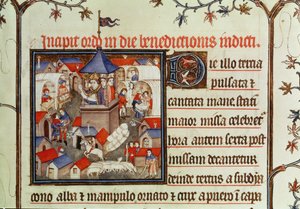 Incipit ordo in die benedictionis indicti.
Die illo tercia
pulsata et
cantata mane stati
maior missa celebret
hora autem serta post
missam decantetur
deinde tertus a subdya
cono alba et manipulo ornato et crux a puero i capa